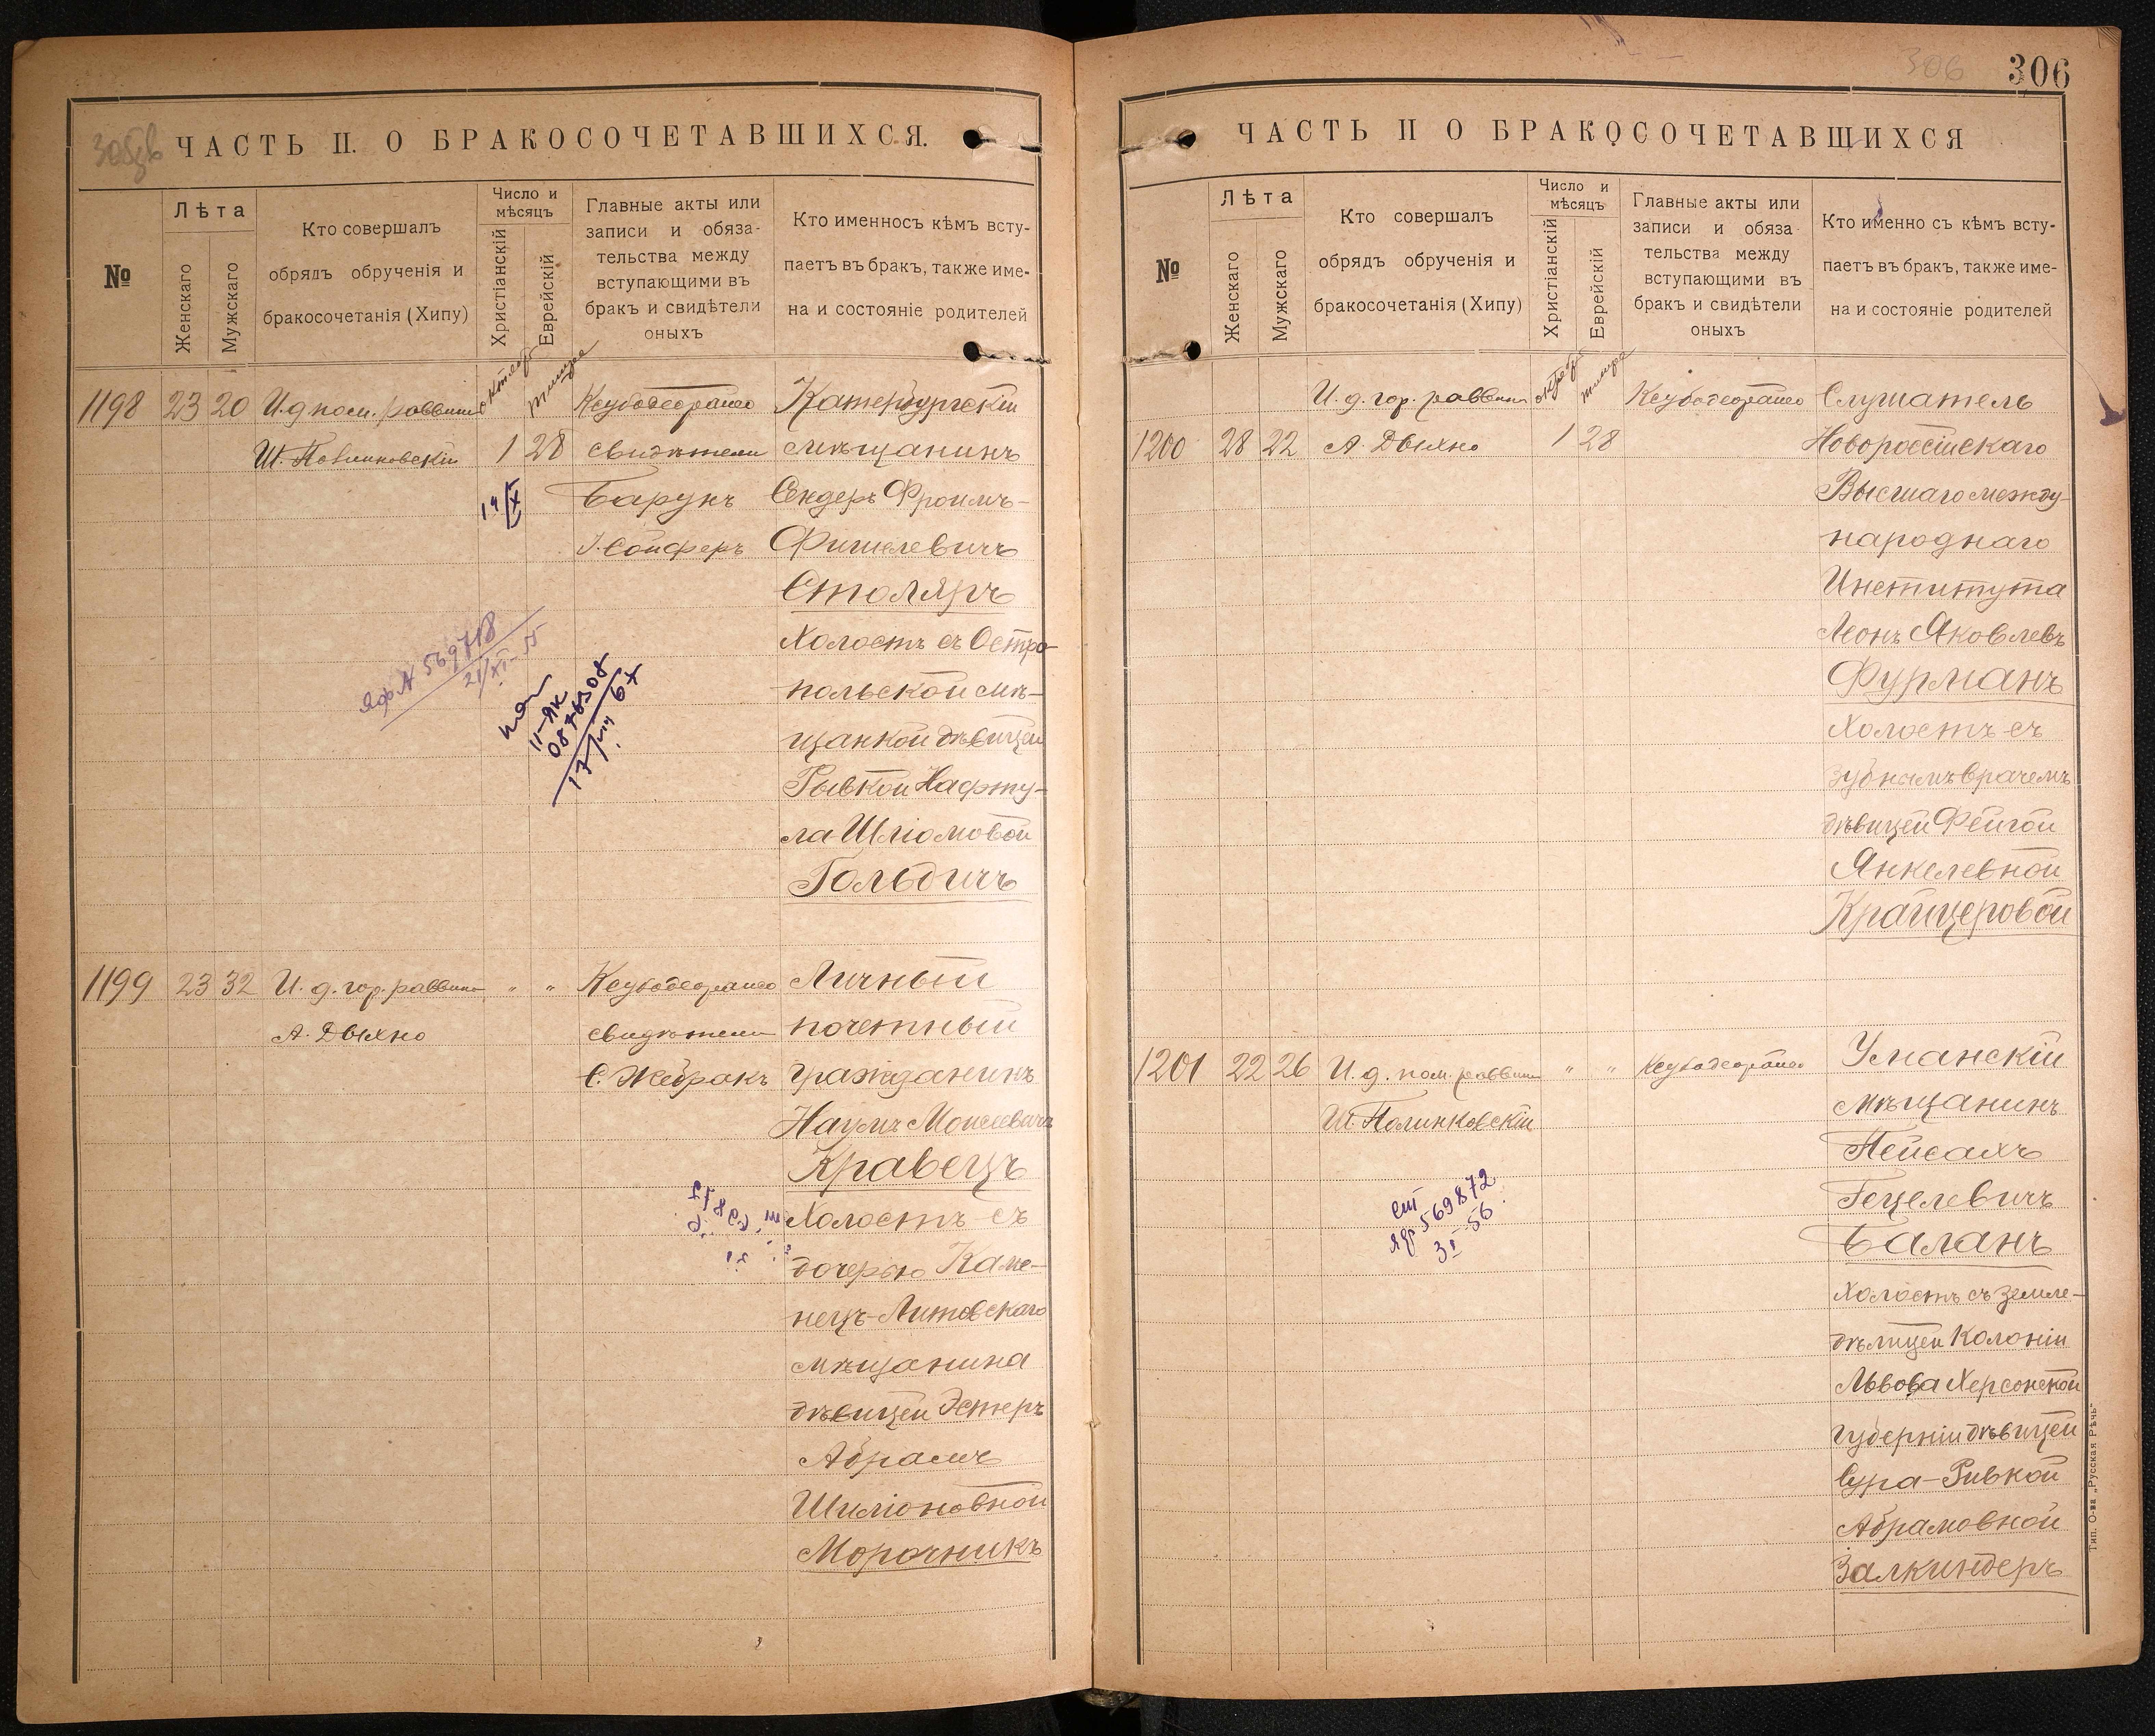 306
306
ЧАСТЬ II. О БРАКОСОЧЕТАВШИХСЯ.
№
Лѣта
Женскаго
Мужскаго
Кто совершалъ
обрядъ обрученія и
бракосочетанія (Хипу)
Число и
мѣсяцъ
Христіанскій
Еврейскій
Главные акты или
записи и обяза-
тельства между
вступающими въ
бракъ и свидѣтели
оныхъ
Кто именносъ кѣмъ всту-
паетъ въ бракъ, также име-
на и состояніе родителей
1198 23 20 И.д. пом. раввина
Ш. Полинковскій
октябр
тишре
1 28
14/IX
свидѣтели
Барукъ
Сойферъ
Катербургскій
мѣщанинъ
Сендеръ Фроимъ-
Фишелевичъ
Столяръ
Холостъ съ Остро-
польской мѣ-
щанкой дѣвицей
Рывкой Нафту-
ла Шліомовой
Гольдичъ
569718
21/XI-55
II-ЯК
087630
17/VIII
1199 23 32 И. д. гор. раввина " "
А. Дыхно
свидѣтели
С. Жебракъ
Личный
почетный
гражданинъ
Наумъ Моисеевичъ
Кравецъ
Холостъ съ
дочерью Каме-
нецъ-Литовскаго
мѣщанина
дѣвицей Эстеръ
Абрамъ
Шиліоновной
Морочникъ
ЧАСТЬ II О БРАКОСОЧЕТАВЩИХСЯ
№
Лѣта
Женскаго
Мужскаго
Кто совершалъ
обрядъ обрученія и
бракосочетанія (Хипу)
Число и
мѣсяцъ
Христіанскій
Еврейскій
Главные акты или
записи и обяза
тельства между
вступающими въ
бракъ и свидѣтели
оныхъ
Кто именно съ кѣмъ всту-
паетъ въ бракъ, также име-
на и состояніе родителей
И. д. гор. раввина
октябр
тишре
1200 28 22 А. Дыхно 1 28
Слушатель
Новороссійскаго
Высшаго между-
народнаго
Института
Леонъ Яковлевъ
Фурманъ
Холостъ съ
зубнымъ врачемъ
дѣвицей Фейгой
Янкелевной
Крайцеровой
1201 22 26 И. д. пом. раввина " "
Ш. Полинковскій
569872
3 I 56
Уманскій
мѣщанинъ
Пейсахъ
Гецелевичъ
Баланъ
Холостъ съ земле-
дѣлицей Колоніи
Львова Херсонской
губерніи дѣвицей
Сура-Ривкой
Абрамовной
Залкиндеръ
Тип. О-ва „Русская Рѣчь"